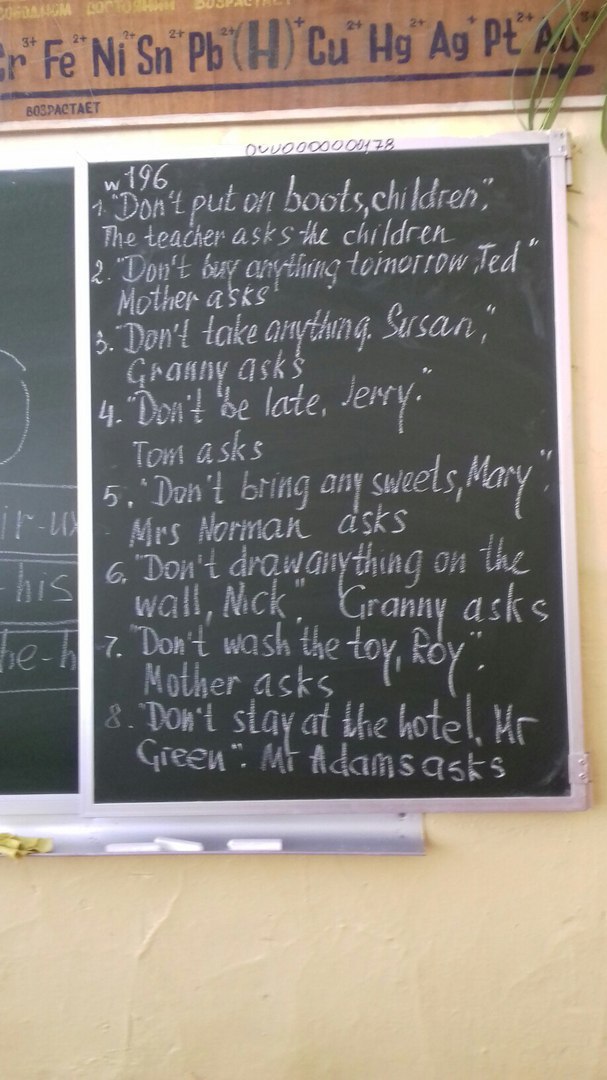 СВОБОДНОМ СОСТОЯНИИ ВОЗРАСТАЕТ
Cr³⁺ Fe²⁺ Ni²⁺ Sn²⁺ Pb²⁺ (H)⁺ Cu²⁺ Hg²⁺ Ag⁺ Pt²⁺ Au³⁺
ВОЗРАСТАЕТ
w 196
1. "Don't put on boots, children".
The teacher asks the children
2. "Don't buy anything tomorrow, Ted"
Mother asks
3. "Don't take anything. Susan,"
Granny asks
4. "Don't be late, Jerry."
Tom asks
5. "Don't bring any sweets, Mary".
Mrs Norman asks
6. "Don't draw anything on the
wall, Nick". Granny asks
7. "Don't wash the toy, Roy".
Mother asks
8. "Don't stay at the hotel, Mr
Green". Mr Adams asks
ir-ux
his
he-h